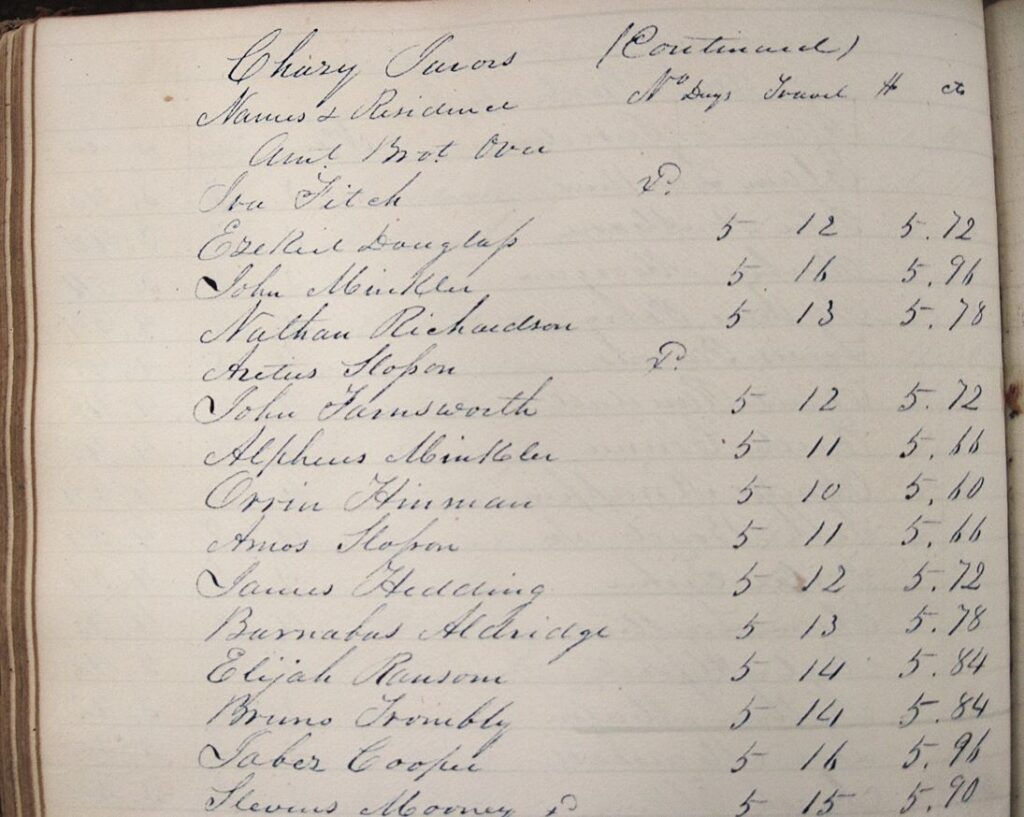 Chazy Jurors (Continued)
Names & Residence No Days Travel $ cts
Amt Brot Over
Ira Fitch P.
Ezekiel Douglass 5 12 5.72
John Minkler 5 16 5.96
Nathan Richardson 5 13 5.78
Aretus Slosson P.
John Farnsworth 5 12 5.72
Alpheus Minkler 5 11 5.66
Orrin Hinman 5 10 5.60
Amos Slosson 5 11 5.66
James Hedding 5 12 5.72
Barnabus Aldridge 5 13 5.78
Elijah Ransom 5 14 5.84
Bruno Trombly 5 14 5.84
Taber Cooper 5 16 5.96
Stevens Mooney P 5 15 5.90